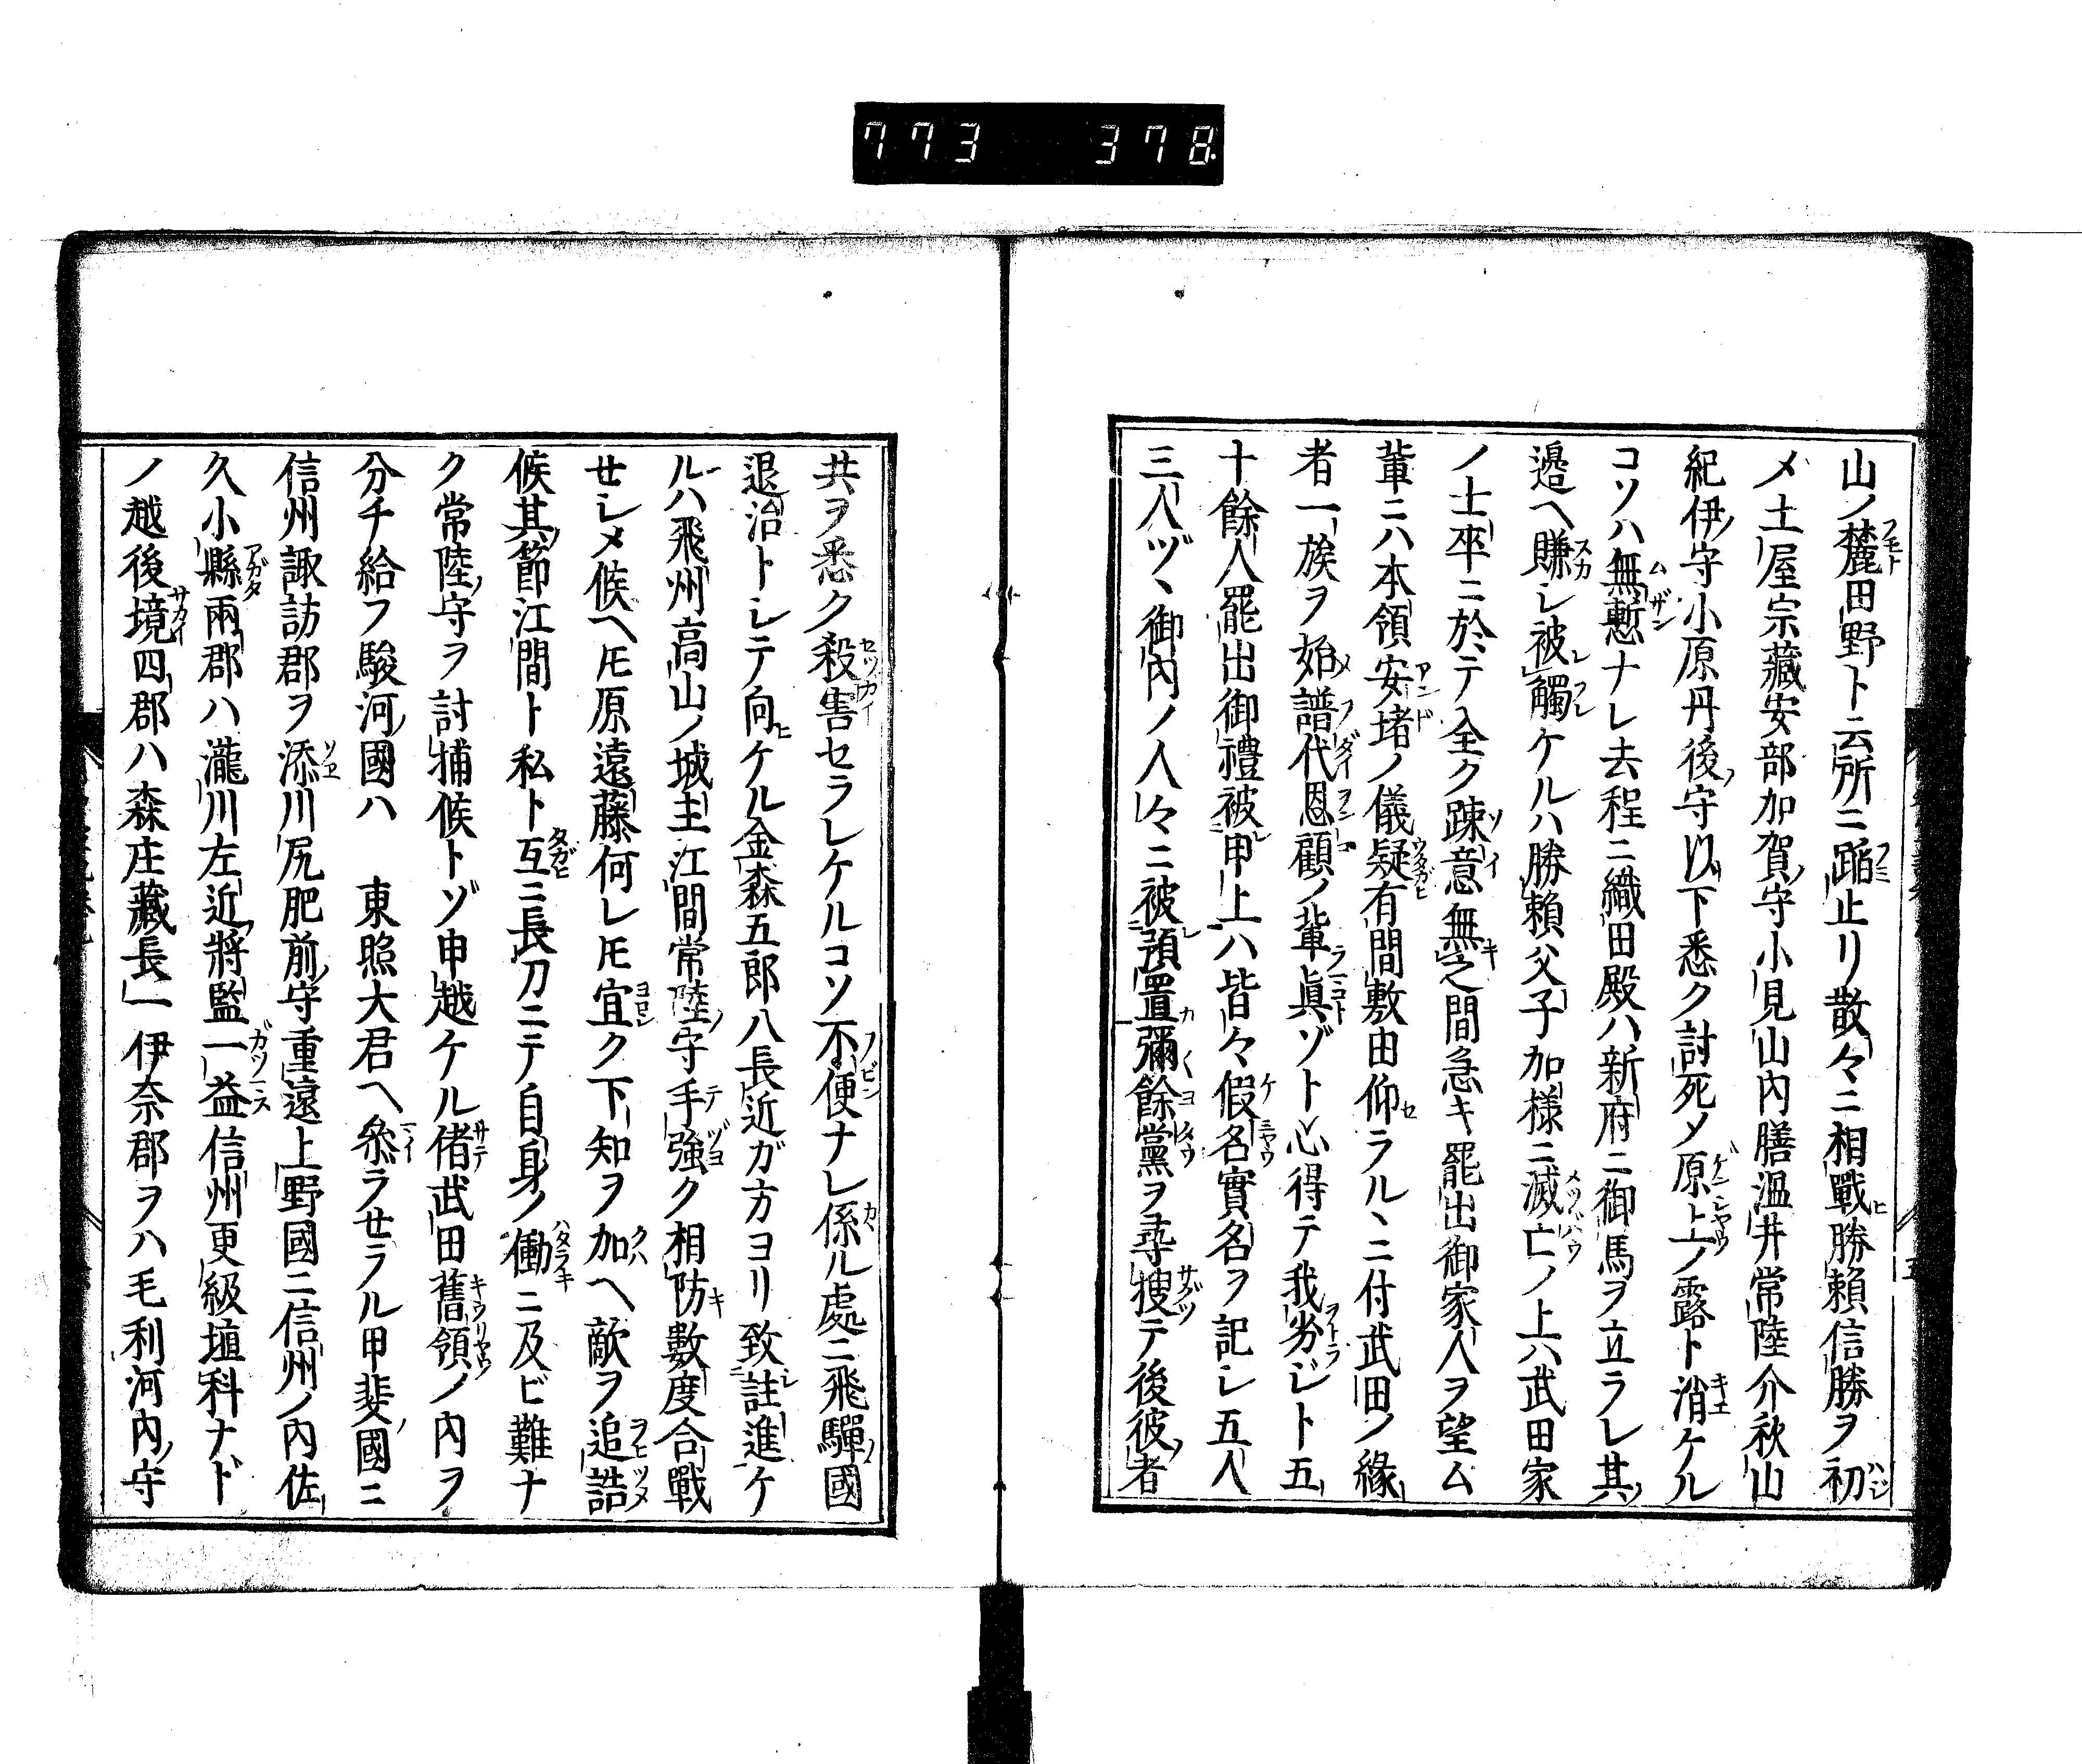 773 378
山ノ麓田野ト云所ニ蹈止リ散々ニ相戰勝賴信勝ヲ初
メ土屋宗藏安部加賀守小見山內膳溫井常陸介秋山
紀伊守小原丹後守以下悉ク討死メ原上ノ露ト消ケル
コソハ無慙ナレ去程ニ織田殿ハ新府ニ御馬ヲ立ラレ其
邊ヘ賺レ被觸ケルハ勝賴父子加樣ニ滅亡ノ上ハ武田家
ノ士卒ニ於テ全ク踈意無之間急キ罷出御家人ヲ望ム
輩ニハ本領安堵ノ儀疑有間敷由仰ラルヽニ付武田ノ緣
者一族ヲ始譜代恩顧ノ輩眞ゾト心得テ我劣ジト五
十餘人罷出御禮被申上ハ皆々假名實名ヲ記レ五人
三人ヅヽ御內ノ人々ニ被預置彌餘黨ヲ尋搜テ後彼者
共ヲ悉ク殺害セラレケルコソ不便ナレ係ル處ニ飛驒國
退治トレテ向ケル金森五郎八長近ガ方ヨリ致註進ケ
ルハ飛州高山ノ城主江間常陸守手強ク相防數度合戰
せレメ候ヘ𪜈原遠藤何レ𪜈宜ク下知ヲ加ヘ敵ヲ追詰
候其節江間ト私ト互ニ長刀ニテ自身ノ働ニ及ビ難ナ
ク常陸守ヲ討捕候トゾ申越ケル偖武田舊領ノ內ヲ
分チ給フ駿河國ハ 東照大君ヘ叅ラせラル甲斐國ニ
信州諏訪郡ヲ添川尻肥前守重遠上野國ニ信州ノ內佐
久小縣兩郡ハ瀧川左近將監一益信州更級埴科ナド
ノ越後境四郡ハ森庄藏長一伊奈郡ヲハ毛利河內守